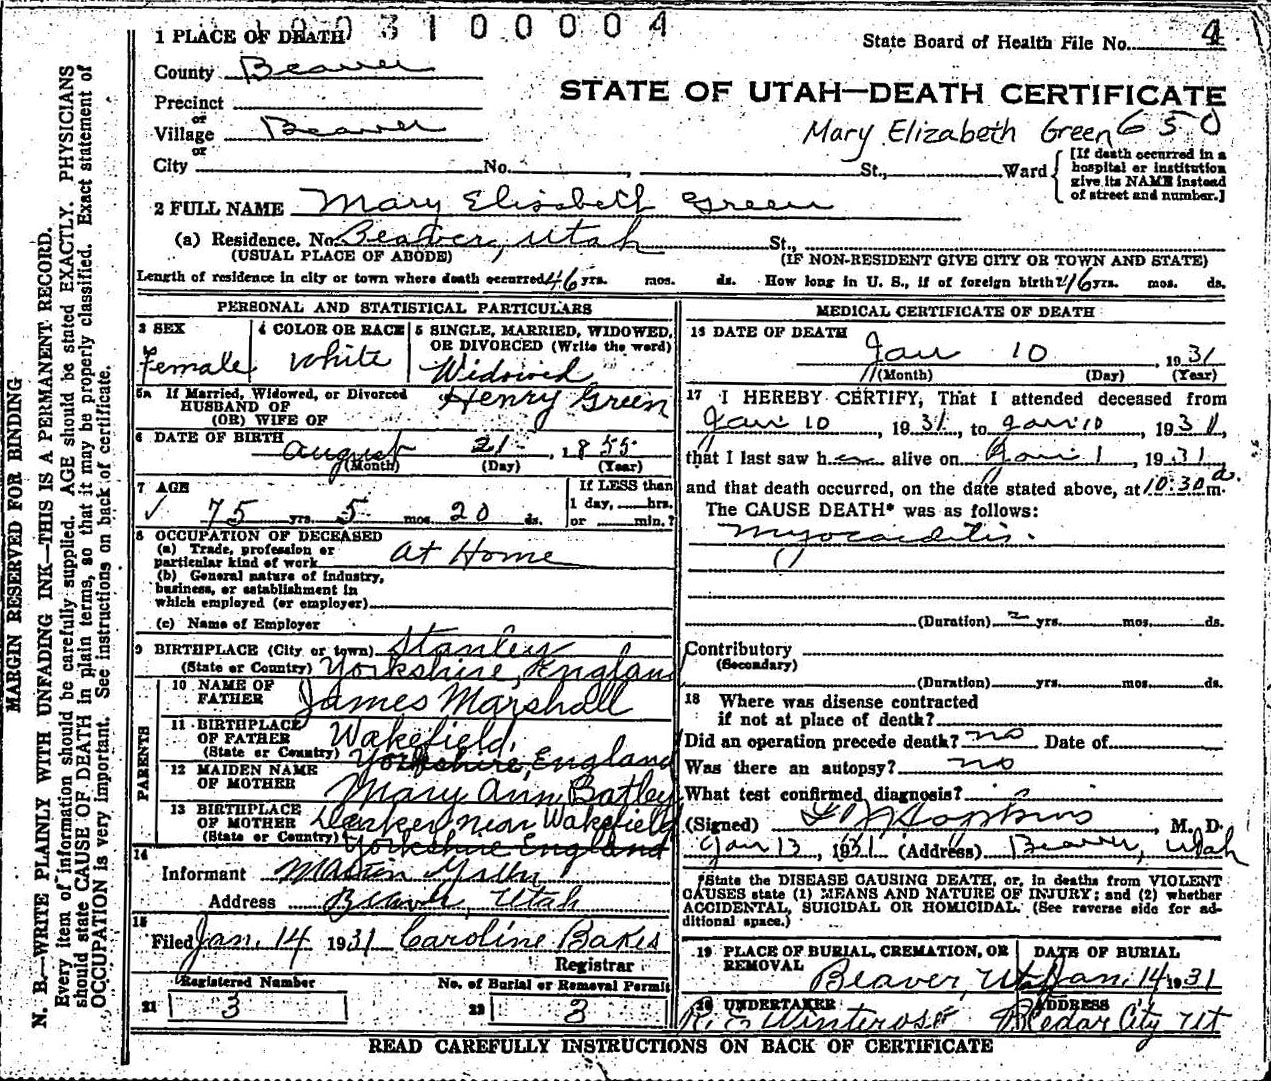 1 0 0 3 1 0 0 0 0 4
1 PLACE OF DEATH
State Board of Health File No. 4
County Beaver
STATE OF UTAH—DEATH CERTIFICATE
Precinct
or
Village Beaver
or
Mary Elizabeth Green 650
City No. St., Ward
[If death occurred in a
hospital or institution
give its NAME instead
of street and number.]
2 FULL NAME Mary Elisabeth Green
(a) Residence. No. Beaver, Utah St.,
(USUAL PLACE OF ABODE) (IF NON-RESIDENT GIVE CITY OR TOWN AND STATE)
Length of residence in city or town where death occurred 46 yrs. mos. ds. How long in U. S., if of foreign birth? 46 yrs. mos. ds.
PERSONAL AND STATISTICAL PARTICULARS
3 SEX
Female
4 COLOR OR RACE
White
5 SINGLE, MARRIED, WIDOWED,
OR DIVORCED (Write the word)
Widowed
5a If Married, Widowed, or Divorced
HUSBAND OF
(OR) WIFE OF
Henry Green
6 DATE OF BIRTH
August 21, 1855
(Month) (Day) (Year)
7 AGE
75 yrs. 5 mos. 20 ds.
If LESS than
1 day, hrs.
or min.?
8 OCCUPATION OF DECEASED
(a) Trade, profession or
particular kind of work at Home
(b) General nature of industry,
business, or establishment in
which employed (or employer)
(c) Name of Employer
9 BIRTHPLACE (City or town) Stanley
(State or Country) Yorkshire, England
PARENTS
10 NAME OF
FATHER James Marshall
11 BIRTHPLACE
OF FATHER
(State or Country)
Wakefield,
Yorkshire, England
12 MAIDEN NAME
OF MOTHER Mary Ann Batley
13 BIRTHPLACE
OF MOTHER
(State or Country)
near Wakefield
Yorkshire England
14
Informant
Address Beaver, Utah
15
Filed Jan. 14 1931 Caroline Bakes
Registrar
Registered Number
21 3
No. of Burial or Removal Permit
22 3
MEDICAL CERTIFICATE OF DEATH
16 DATE OF DEATH
Jan 10, 1931
(Month) (Day) (Year)
17 I HEREBY CERTIFY, That I attended deceased from
Jan 10, 1931, to Jan 10, 1931,
that I last saw her alive on Jan 1, 1931
and that death occurred, on the date stated above, at 10:30 a. m.
The CAUSE DEATH* was as follows:
Myocarditis.
(Duration) 2 yrs. mos. ds.
Contributory
(Secondary)
(Duration) yrs. mos. ds.
18 Where was disease contracted
if not at place of death?
Did an operation precede death? no Date of
Was there an autopsy? no
What test confirmed diagnosis?
(Signed) Hopkins, M. D.
Jan 13, 1931 (Address) Beaver, Utah
*State the DISEASE CAUSING DEATH, or, in deaths from VIOLENT
CAUSES state (1) MEANS AND NATURE OF INJURY; and (2) whether
ACCIDENTAL, SUICIDAL OR HOMICIDAL. (See reverse side for ad-
ditional space.)
19 PLACE OF BURIAL, CREMATION, OR
REMOVAL
Beaver, Utah
DATE OF BURIAL
Jan. 14 1931
20 UNDERTAKER
R. E. Winterose
ADDRESS
Cedar City Ut
READ CAREFULLY INSTRUCTIONS ON BACK OF CERTIFICATE
MARGIN RESERVED FOR BINDING
N. B.—WRITE PLAINLY WITH UNFADING INK—THIS IS A PERMANENT RECORD.
Every item of information should be carefully supplied. AGE should be stated EXACTLY. PHYSICIANS
should state CAUSE OF DEATH in plain terms, so that it may be properly classified. Exact statement of
OCCUPATION is very important. See instructions on back of certificate.